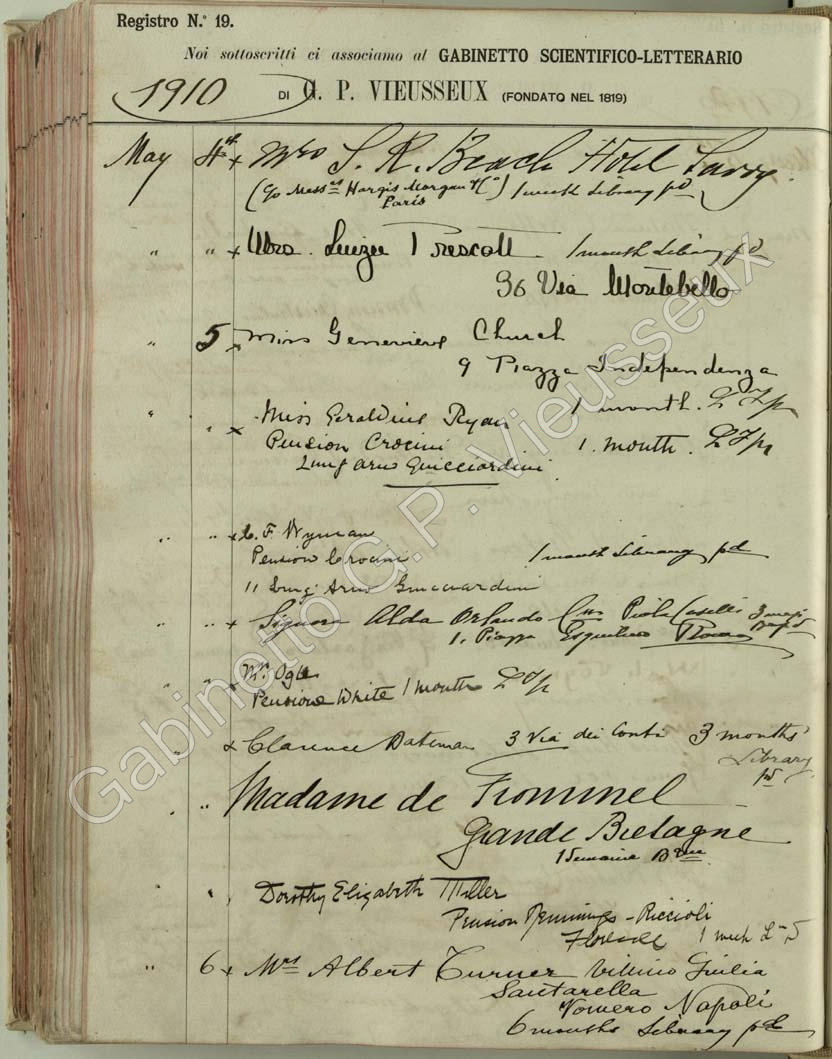 Registro N.° 19.
Noi sottoscritti ci associamo al GABINETTO SCIENTIFICO-LETTERARIO
1910 DI G. P. VIEUSSEUX (FONDATO NEL 1819)
May 4th x Mrs S. R. Beach Hotel Savoy.
(c/o Messrs Hargis Morgan & Co) 1 month Library pd
Paris
" " x Mrs. Prescott. 1 month Library pd
36 Via Montebello
" 5 x Miss Genevieve Church
9 Piazza Independenza
1 month.
" " x Miss Geraldine Ryan
Pension Crocini 1. month.
Lung arno Guicciardini
" " x C. F. Wyman
Pension Crocini 1 month Library pd
11 Lung' Arno Guicciardini
" " x Signora Alda Orlando Piola Caselli 3
1. Piazza Esquilino Roma
" " x Mr. Ogle
Pensione White 1 month
" x Clarence Bateman 3 Via dei Conti 3 months'
Library
pd
" " Madame de Frommel
Grande Bretagne
1 Semaine
" " Dorothy Elizabeth Miller
Pension Jennings-Riccioli
Florence 1 week
" 6 x Mrs Albert Turner Villino Giulia
Santarella
Vomero Napoli
6 months Library pd
Gabinetto G.P. Vieusseux